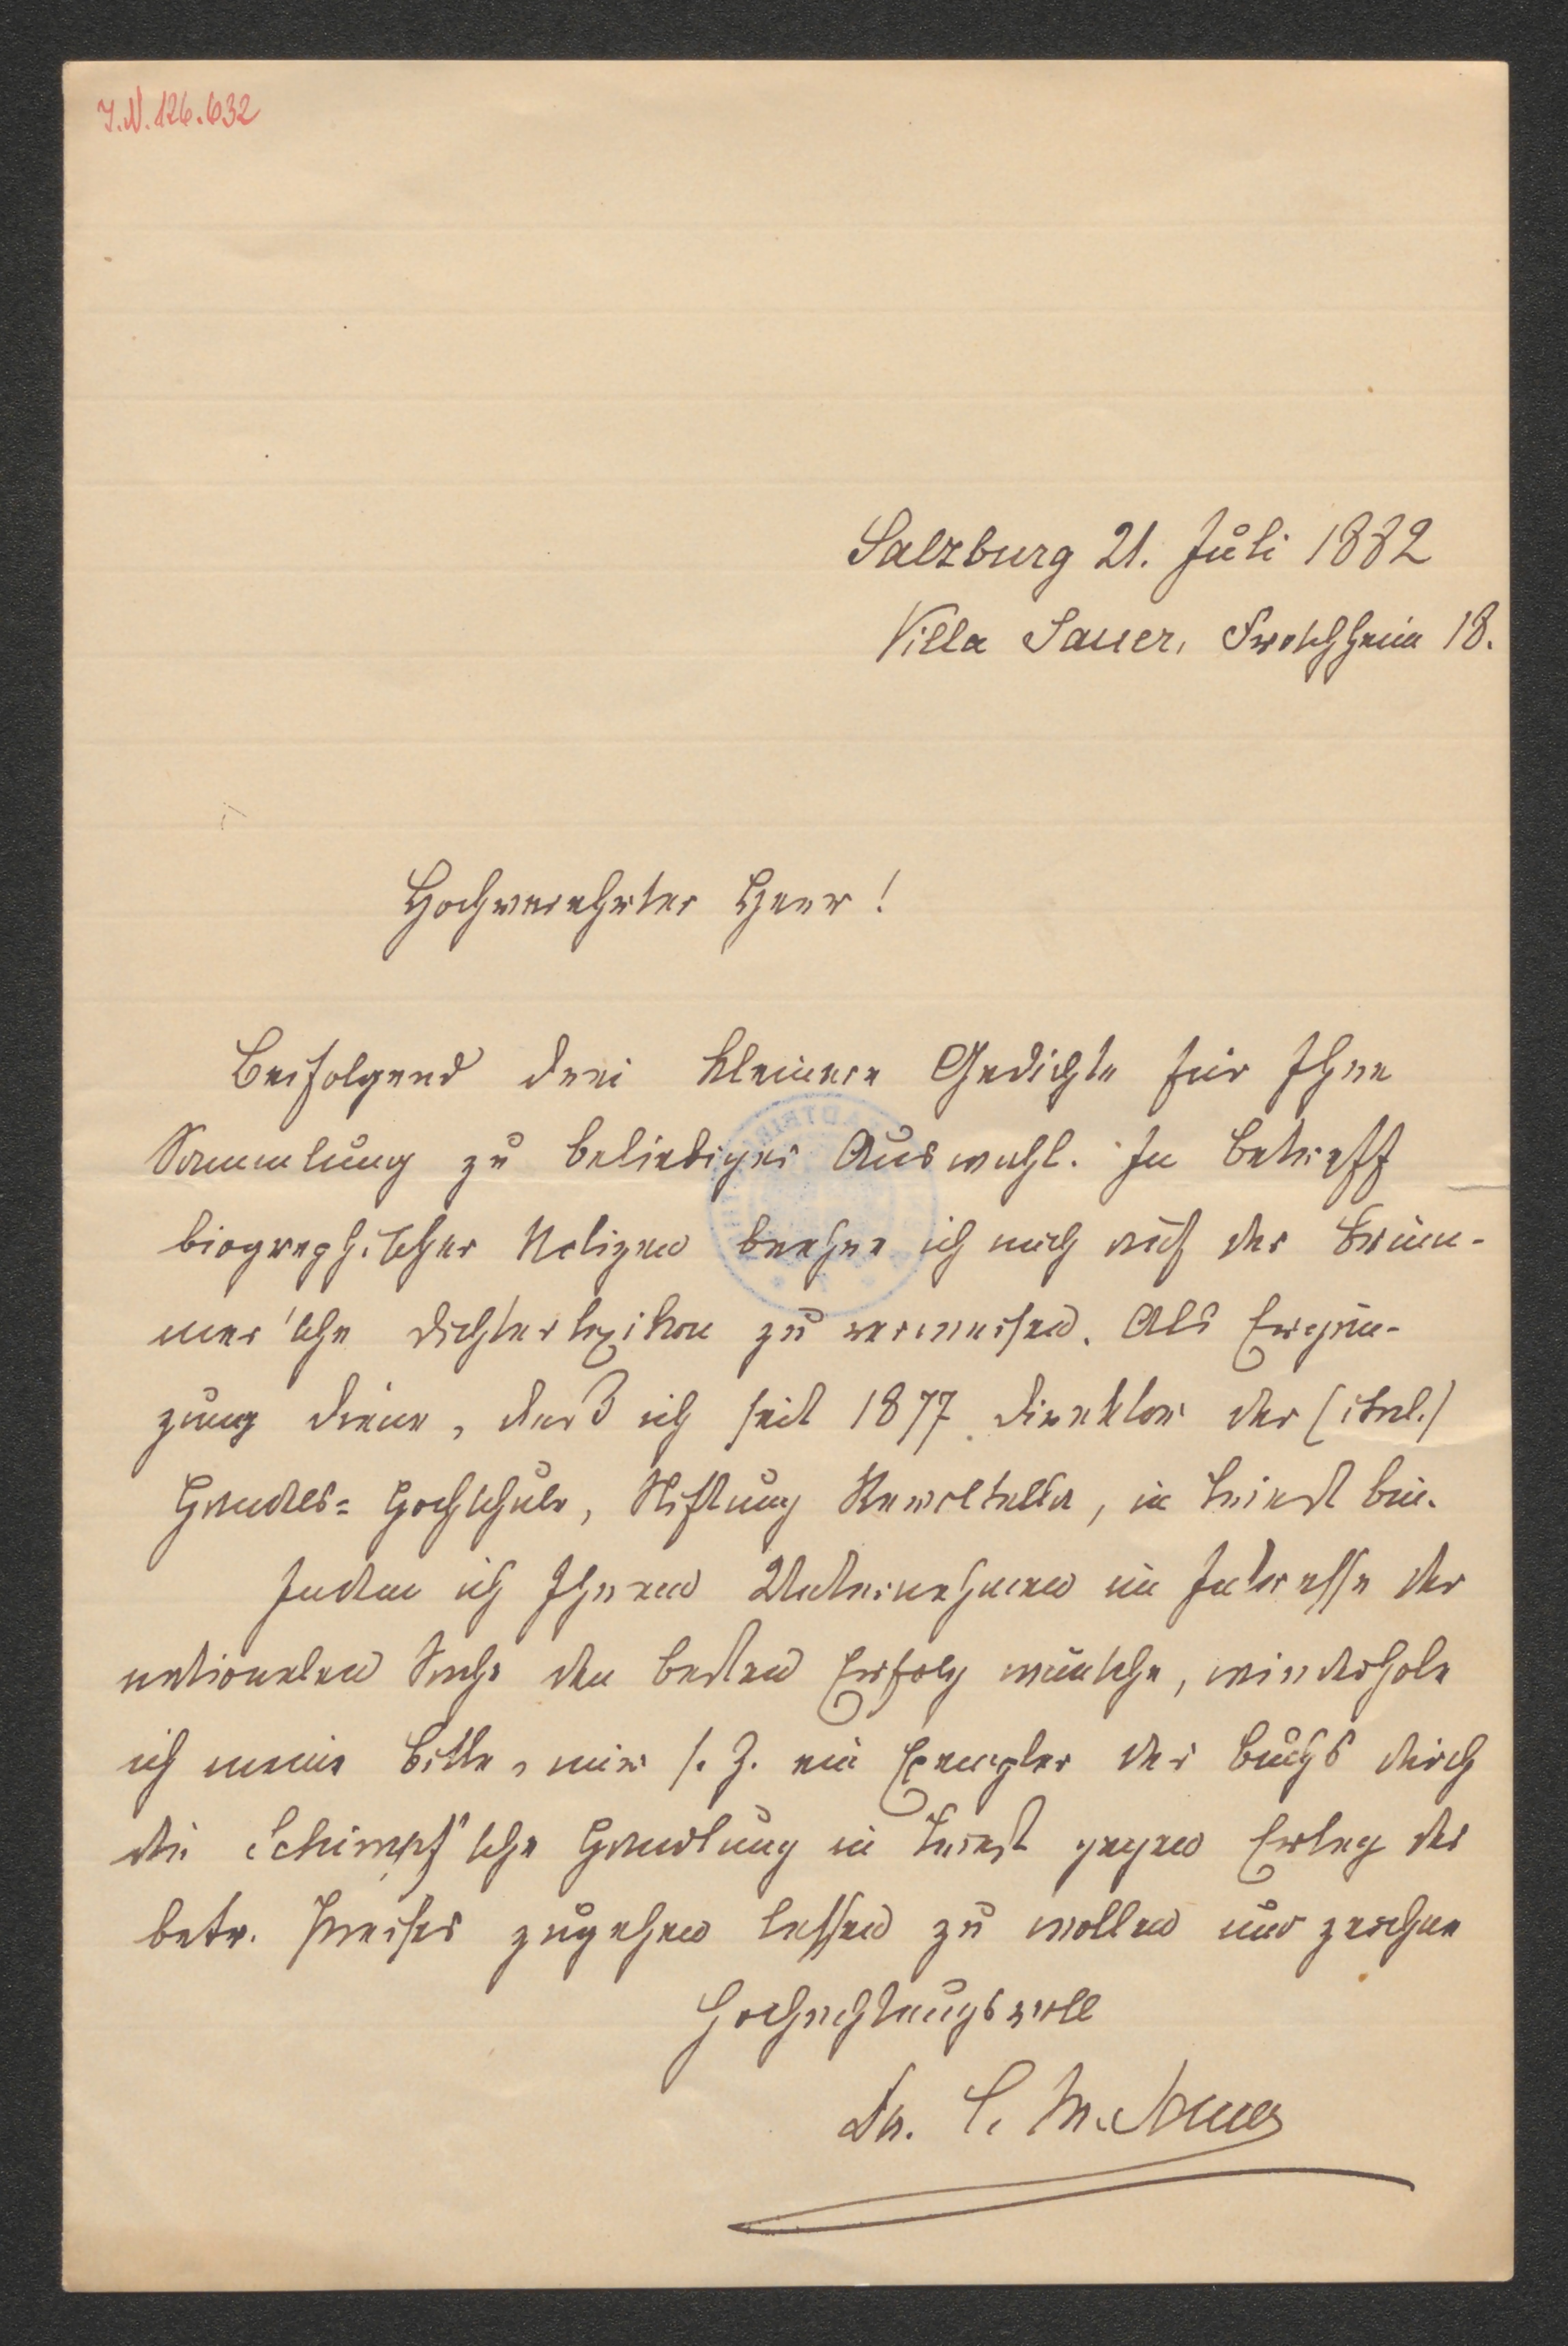 I.N. 126.632
Salzburg 21. Juli 1882
Villa Sauer, Froschheim 18.
Hochverehrter Herr!
Beifolgend drei kleinere Gedichte für Ihre
Sammlung zu beliebiger Auswahl. In Betreff
biographischer Notizen beehre ich mich auf das Brüm-
mer'sche Dichterlexikon zu verweisen. Als Ergän-
zung diene, daß ich seit 1877 Direktor der (ital.)
Handels-Hochschule, Stiftung Revoltella, in Triest bin.
Indem ich Ihrem Unternehmen im Interesse der
nationalen Sache den besten Erfolg wünsche, wiederhole
ich meine Bitte, mir s. Z. ein Exemplar des Buchs durch
die Schimpff'sche Handlung in Triest gegen Erlag des
betr. Preises zugehen lassen zu wollen und zeichne
Hochachtungsvoll
Dr. C. M. Sauer